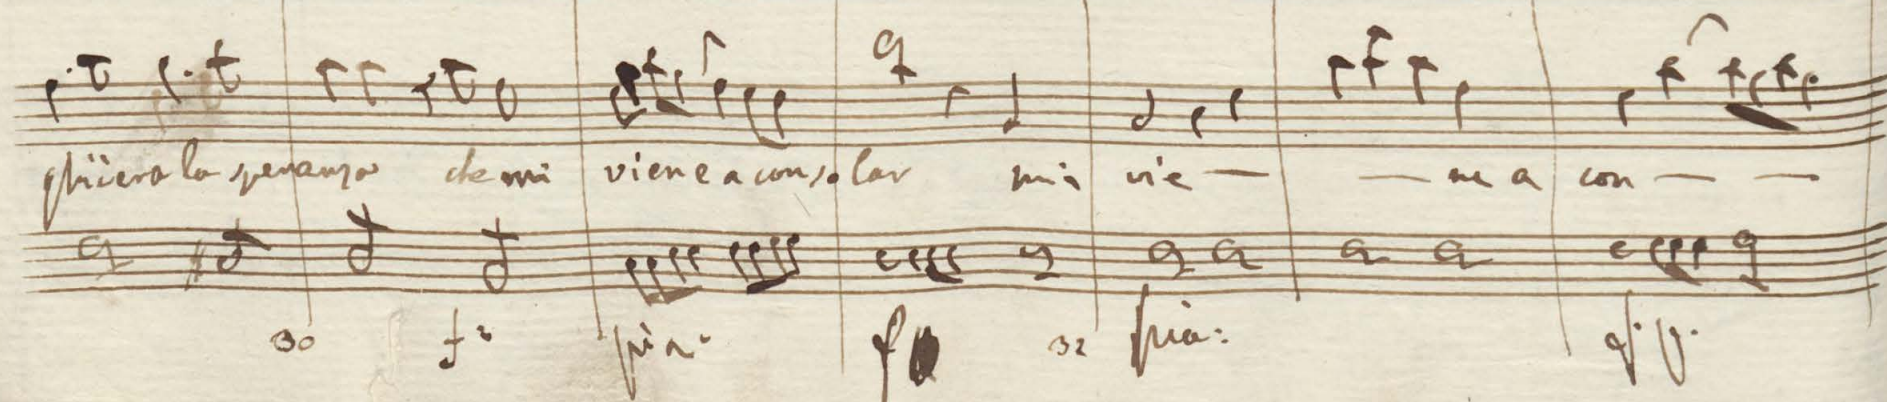 la speranza che mi viene a consolar mi vie — — ne a con — —
30 f: pia: f 32 pia: f: p: